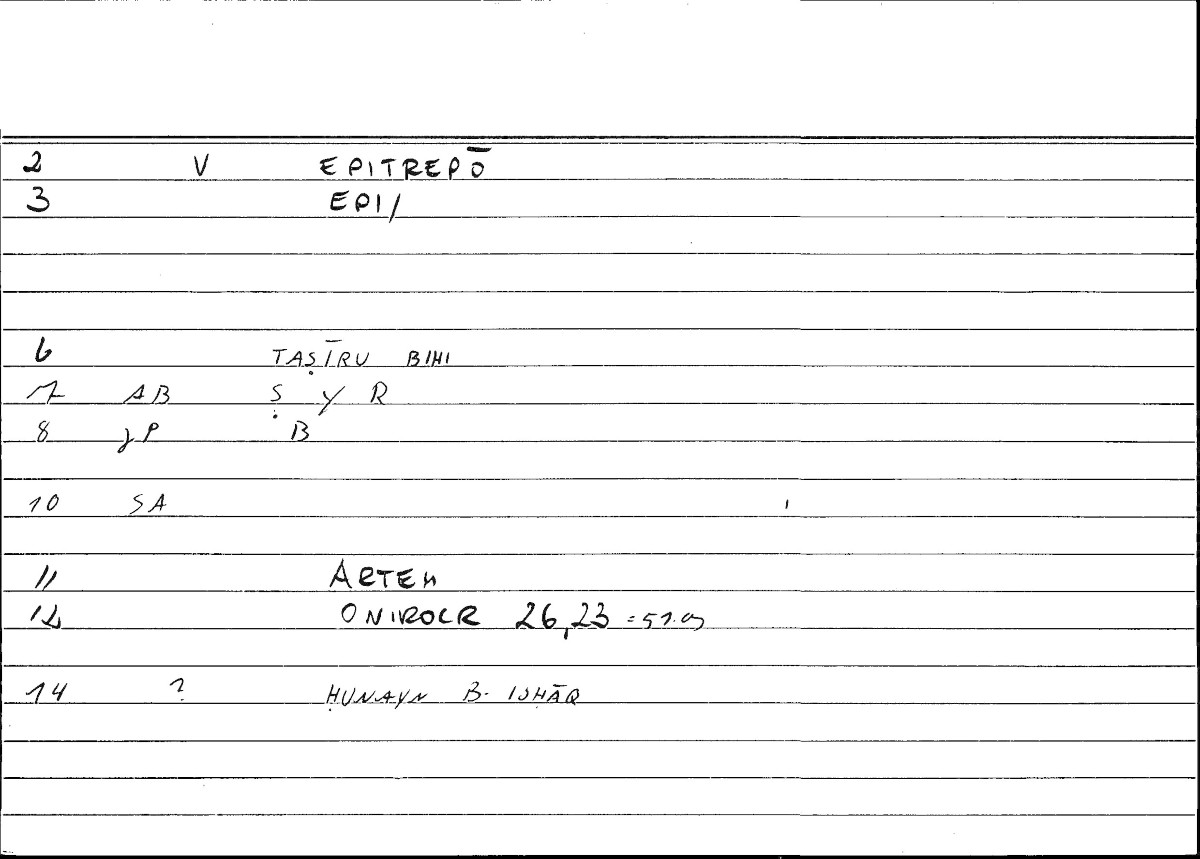 2 V EPITREPŌ
3 EPI/
6 TAṢĪRU BIHI
7 AB Ṣ Y R
8 JP B
10 SA
11 ARTEM
12 ONIROCR 26,23 =
14 ? ḤUNAYN B. ISḤĀQ